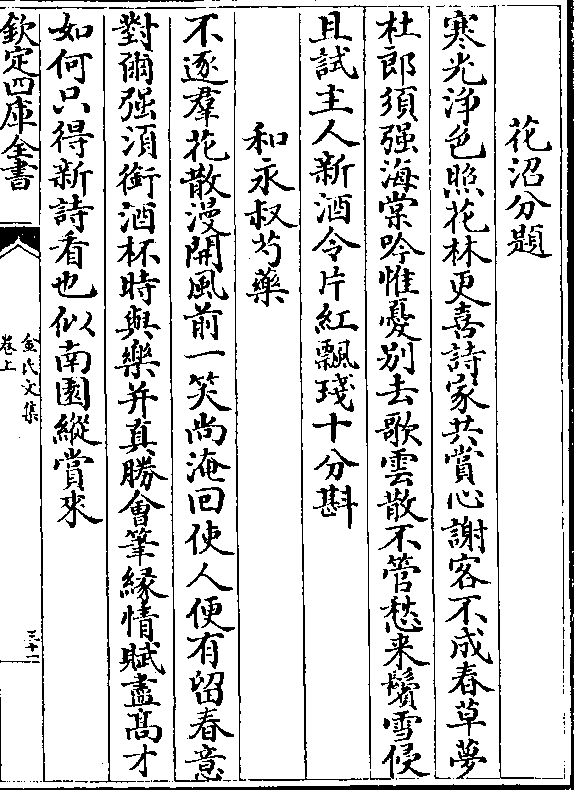 花沼分題
寒光浄色照花林更喜詩家共賞心謝客不成春草夢
杜郎須强海棠吟惟憂别去歌雲散不管愁来鬢雪侵
且試主人新酒令片紅飄琖十分斟
和永叔芍藥
不逐羣花散漫開風前一笑尚淹回使人便有留春意
對爾强須銜酒杯時與樂并真勝會筆縁情賦盡髙才
如何只得新詩看也似南園縱賞來
欽定四庫全書
金氏文集
卷上
三十一